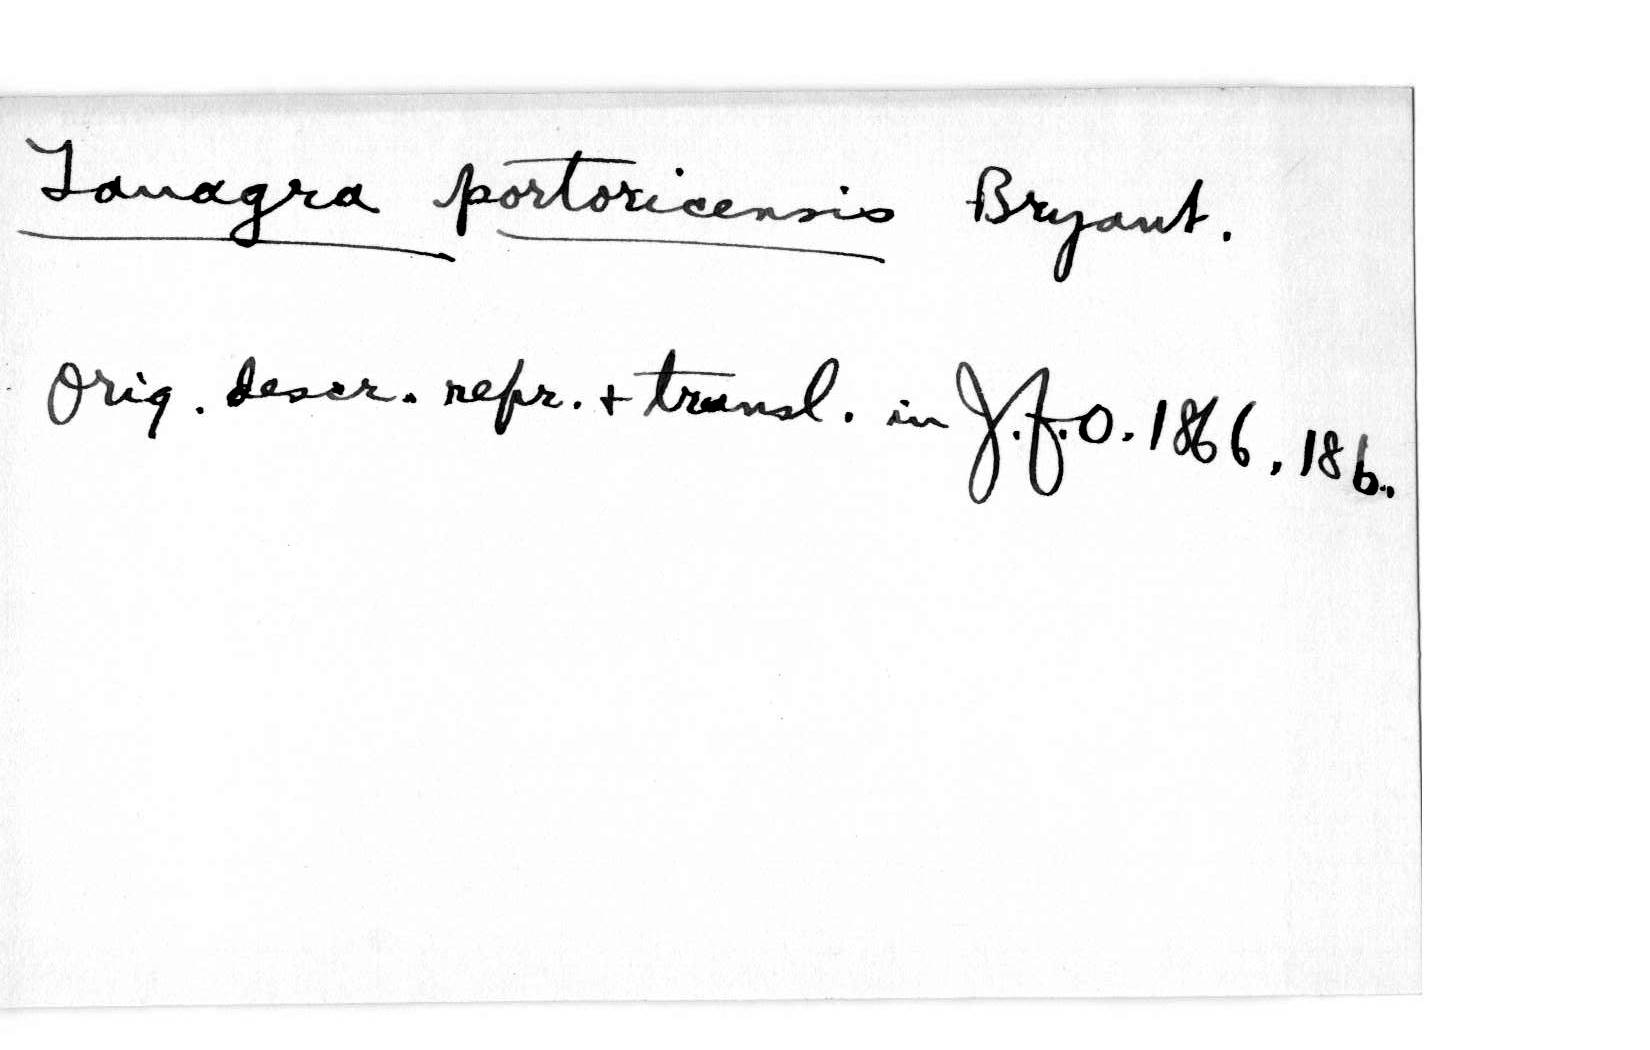 Tanagra portoricensis Bryant.
Orig. descr. repr. + transl. in J.f.O. 1866, 186.